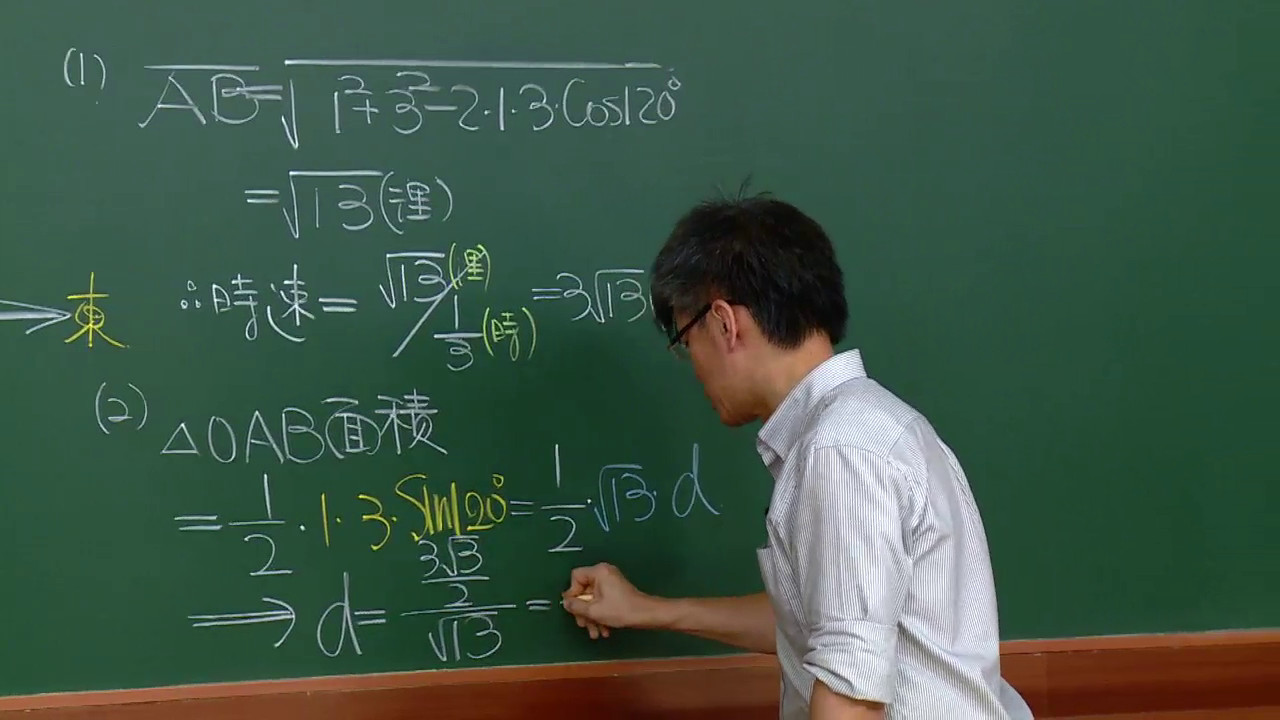 (1) AB=√(1²+3²-2·1·3·Cos120°)
=√13(浬)
東
∴時速= √13(里)/(1/3)(時) =3√13
(2) △OAB面積
=1/2·1·3·Sin120°=1/2·√13·d
⟹ d= (3√3/2)/√13 =